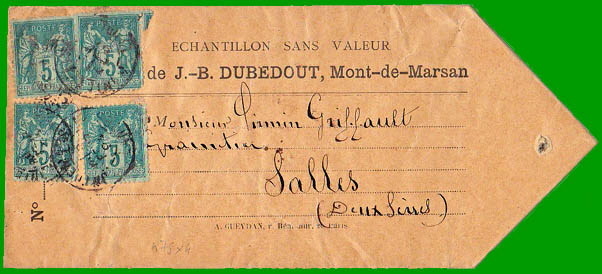 POSTE POSTE
5 5
ECHANTILLON SANS VALEUR
de J.-B. DUBEDOUT, Mont-de-Marsan
POSTE POSTE
5 5
Monsieur Firmin Griffault
Salles
(Deux Sèvres)
No
A. GUEYDAN, r. Paris
475x4